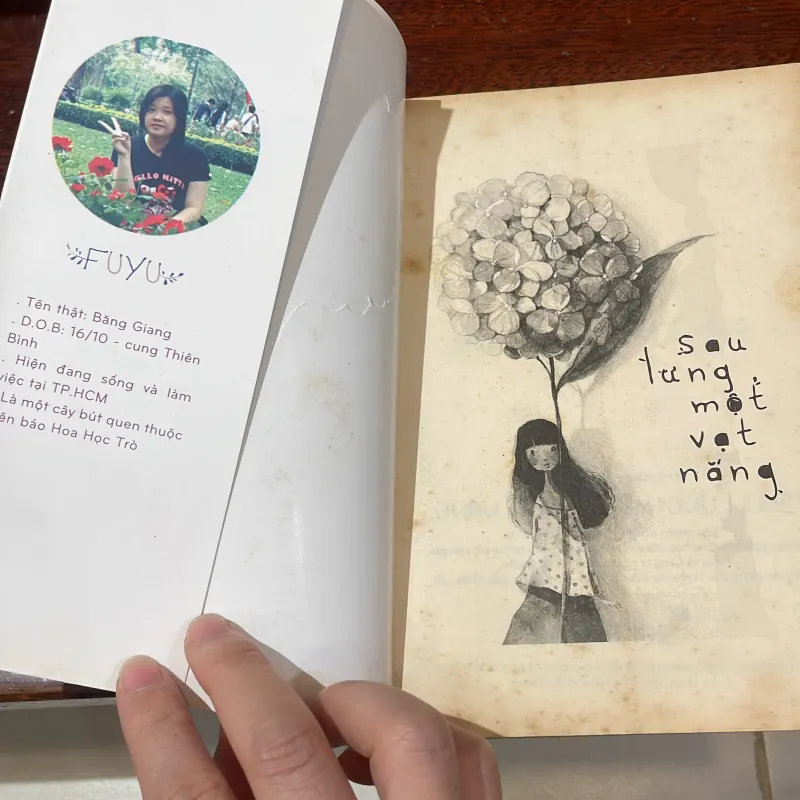 HELLO KITTY
FUYU
. Tên thật: Băng Giang
. D.O.B: 16/10 - cung Thiên
Bình
. Hiện đang sống và làm
việc tại TP.HCM
Là một cây bút quen thuộc
trên báo Hoa Học Trò
sau
lưng
một
vạt
nắng